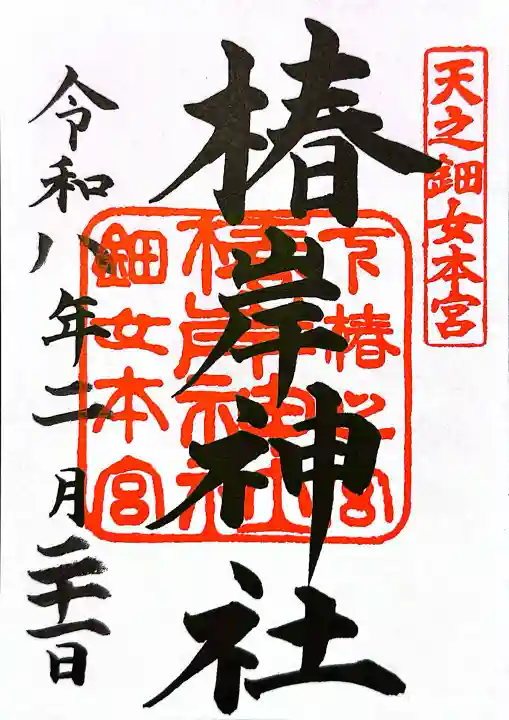 天之鈿女本宮
椿岸神社
下椿之宮
椿岸神社
鈿女本宮
令和八年二月二十一日